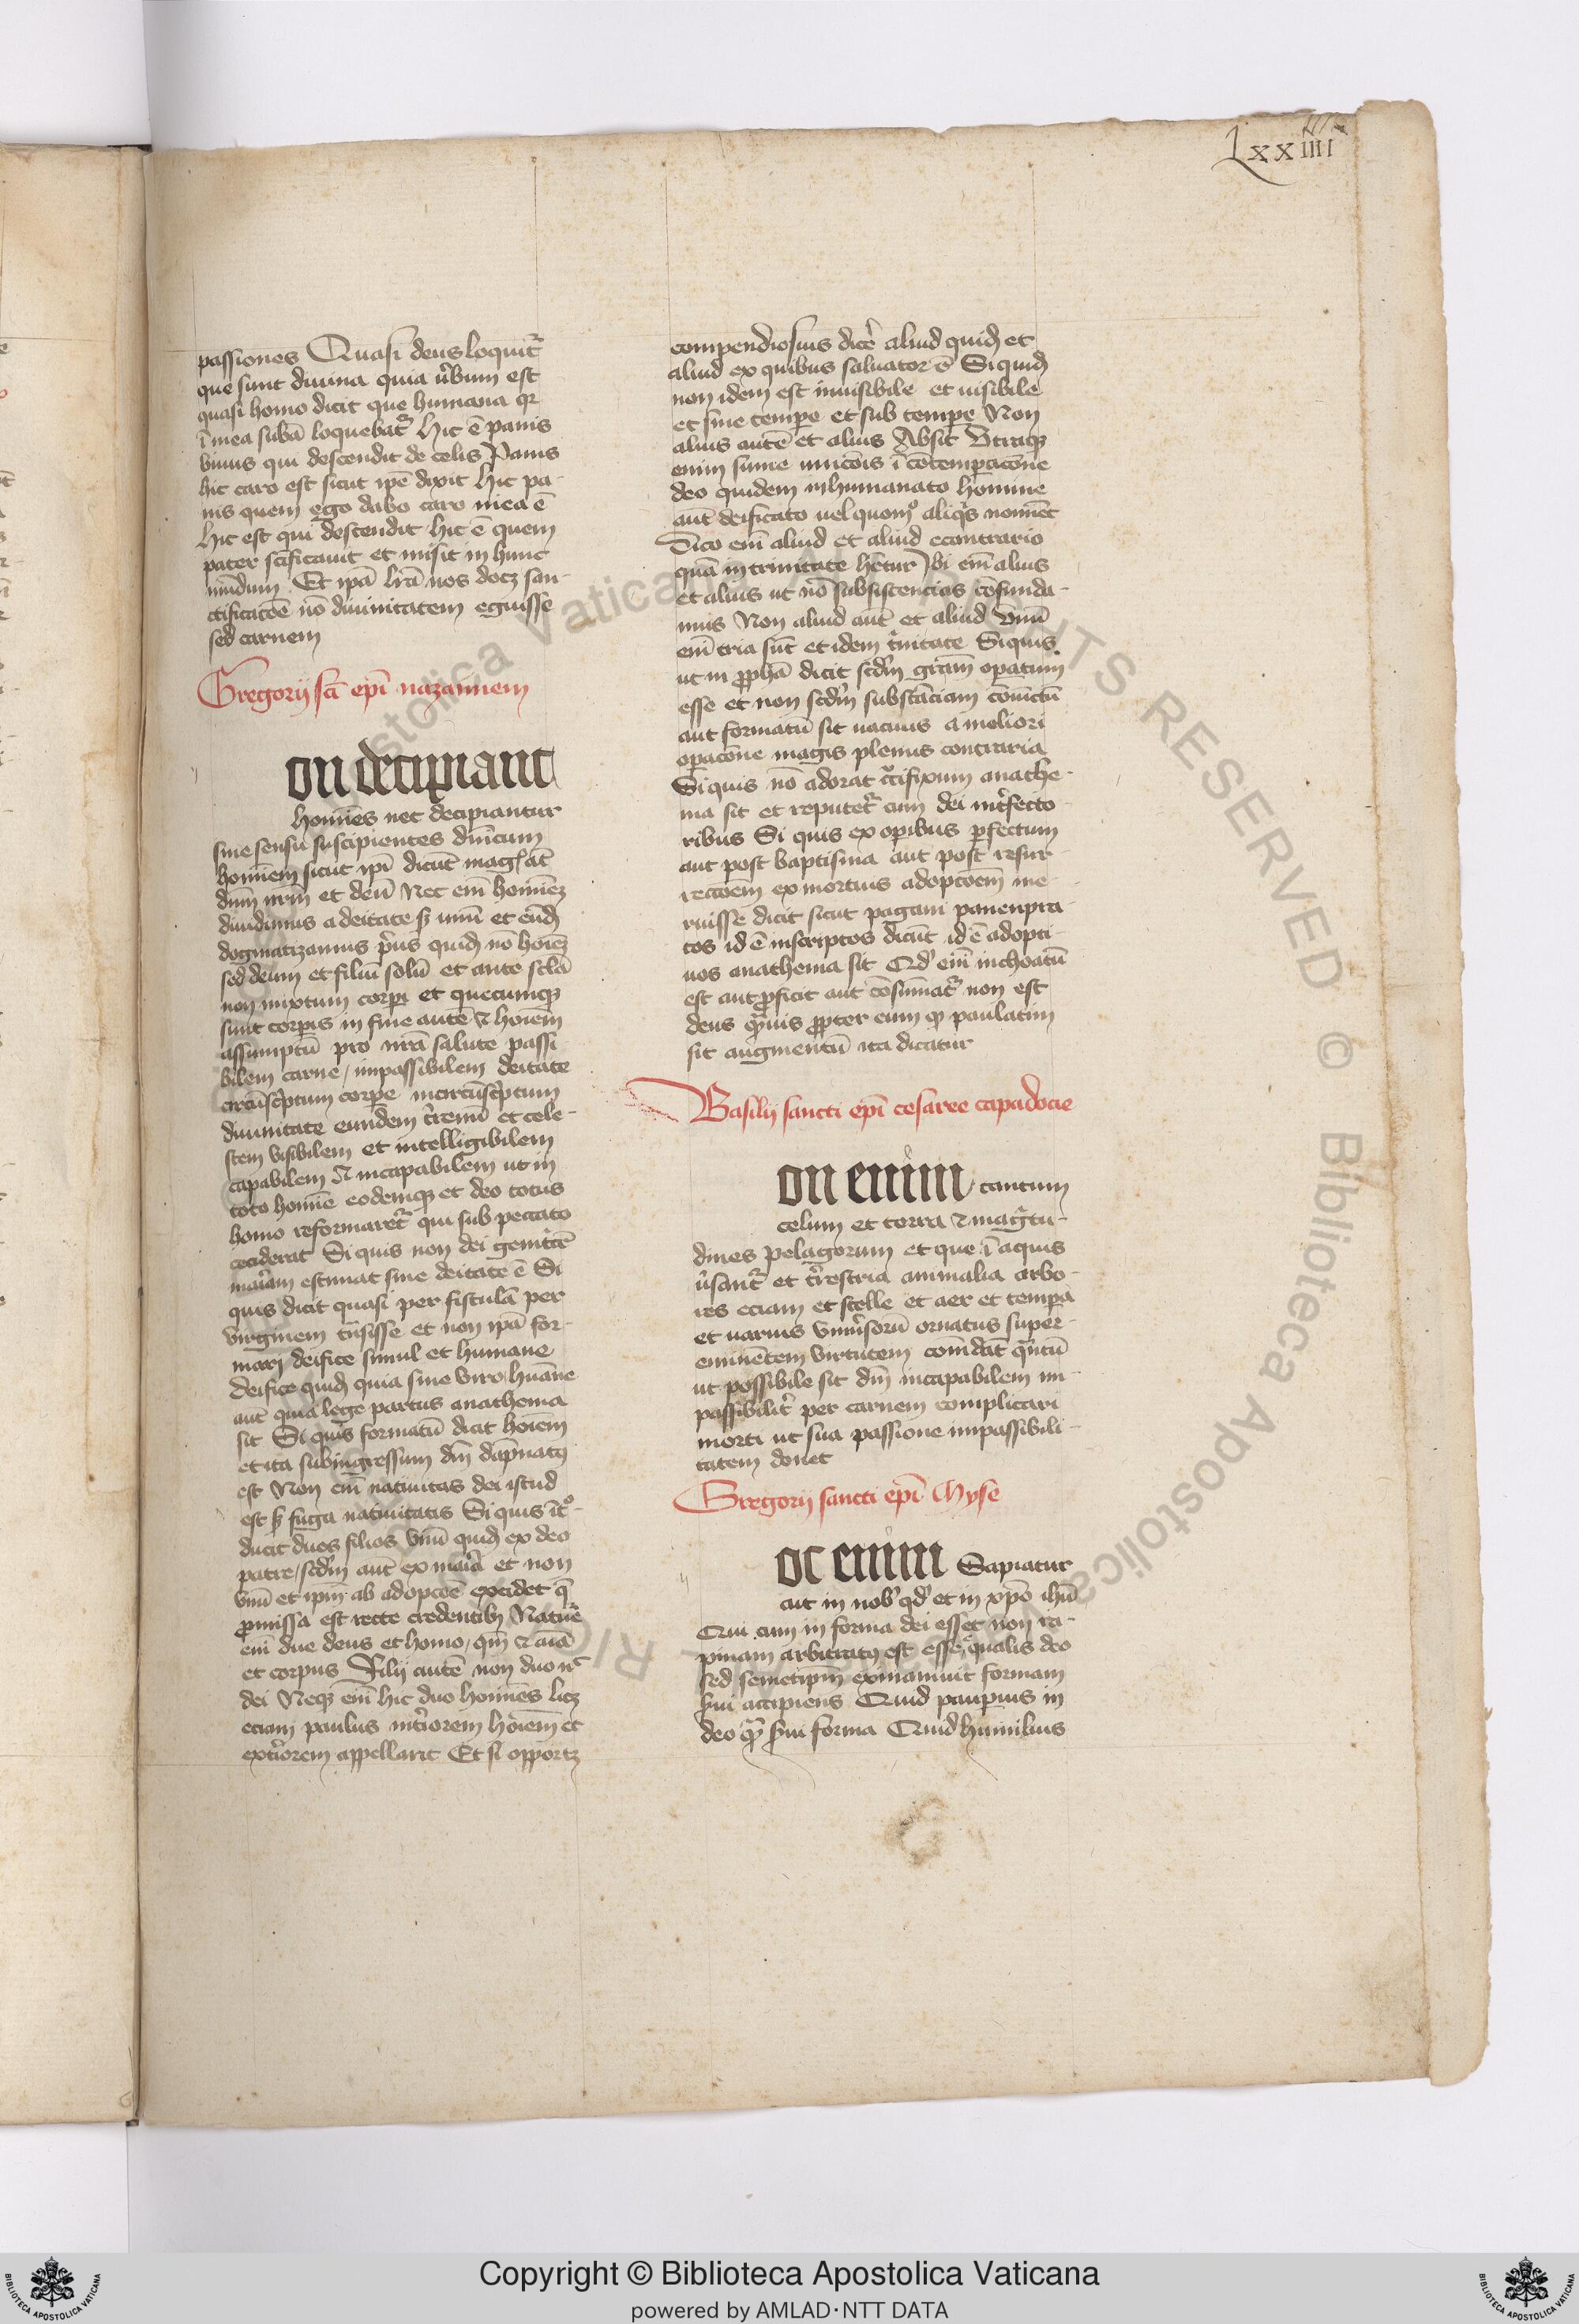 Lxxiiii
passiones Quasi deus loquit᷑
que sunt diuina quia v̉bum est
quasi homo dicit que humana qr
ī mea subā loquebat᷑ Hic ē panis
viuus qui descendit de celis Panis
hic caro est sicut ip̄e dixit Hic pa-
nis quem ego dabo caro mea ē
Hic est qui descendit hic ē quem
pater sc̄ificauit et misit in hunc
mūdum Et ip̄a lr̄a nos docꝫ san-
ctificacōē nō diuinitatem eguisse
sed carnem
Gregorij sc̄i ep̄i nazannem
on decipiant
hom̄ies nec decipiantur
sine sensu suscipientes dn̄icum
hom̄iem sicut ip̄i dicūt mag̉ aūt
dn̄m nr̄m et deū Nec em̄ hom̄ieꝫ
diuidimus a deitate sꝫ unū et eūdꝫ
dogmatizamus p̉us quidꝫ nō hoīeꝫ
sed deum et filiū solū et ante sc̄la
non mixtum corpi et quecumqꝫ
sunt corpis in fine autē ⁊ hoīem
assumptū pro nr̄a salute passi
bilem carne / impassibilem deitate
circūsc̉ptum corpe incircūsc̉ptum
diuinitate eundem t̉renū et cele-
stem visibilem et intelligibilem
capabilem ⁊ incapabilem ut in
toto hom̄ie eodemqꝫ et deo totus
homo reformaret᷑ qui sub peccato
ceciderat Si quis non dei genit̉cē
mar̉iam estimat sine deitate ē Si
quis dicit quasi per fistulā per
virginem tn̄sisse et non ip̄a for-
marj deifice simul et humane
deifice quidꝫ quia sine viro huāne
aūt quia lege partus anathema
sit Si quis formatū dicit hoīem
et ita subingressum dm̄ dāpnatꝰ
est Non em̄ natiuitas dei istud
est sꝫ fuga natiuitatis Si quis īt̊-
ducit duos filios vnū quidꝫ ex deo
patre / scd̄m aūt ex mar̉ia et non
vnū et ip̄m ab adopcōē excidet q̄
ꝓmissa est recte credentibꝫ Natur̄e
em̄ due deus et homo / qm̄ ⁊ aīa
et corpus Filij autē non duo nc̄
dei Neqꝫ em̄ hic duo hom̄ies licꝫ
eciam paulus int̉iorem hoīem et
ext̉iorem appellarit Et si opportꝫ
compendiosius dic̉e aliud quidꝫ et
aliud ex quibus saluator ē Siquidꝫ
non idem est inuisibile et uisibile
et sine tempe et sub tempe Non
alius autē et alius Absit Vtraqꝫ
enim sume unicōis ī cōtempacōne
deo quidem inhumanato homine
aūt deificato uel quomō aliq̉s nomīet
Dico em̄ aliud et aliud econtrario
quā in trinitate hētur Ibi em̄ alius
et alius ut nō subsistencias cōfunda-
mus Non aliud aūt et aliud Vnū
em̄ tria sūt et idem t̉nitate Siquis
ut in ꝓphā dicit scd̄m gr̄am opatum
esse et non scd̄m substāciam cōiūctū
aut formatū sit uacuus a meliori
opacōne magis plenus contraria
Si quis nō adorat c̉cifixum anathe-
ma sit et reputet᷑ cum dei int̉fecto-
ribus Si quis ex opibus pfectum
aut post baptisma aut post resur-
reccōem ex mortuis adopcōem me-
ruisse dicit sicut pagani panenpra-
tos id ē inscriptos dicūt id ē adopti-
uos anathema sit Qd̓ em̄ inchoatū
est aut ꝓficit aut cōsumat᷑ non est
deus q̉uis ꝓpter eum qꝫ paulatim
sit augmentū ita dicatur
Basilij sancti ep̄i cesaree capadocie
on enim tantum
celum et terra ⁊ mag̉tu-
dines pelagorum et que ī aquis
v̉sant᷑ et t̉restria animalia arbo-
res eciam et stelle et aer et tempa
et uarius vniủsorū ornatus super-
eminētem virtutem com̄dāt q̄ntū
ut possibile sit dm̄ incapabilem im-
passibilit̉ per carnem complicari
morti ut sua passione impassibili-
tatem donet
Gregorij sancti ep̄i Nyse
oc enim Sapiatur
ait in nob̉ qd̓ et in xp̄o ihū
Qui cum in forma dei esset non ra-
pinam arbitratꝰ est esse equalis deo
sed semetip̄m exinaniuit formam
s̉ui accipiens Quid paupius in
deo q̄ꝫ s̉ui forma Quid humilius
Copyright © Biblioteca Apostolica Vaticana
powered by AMLAD·NTT DATA